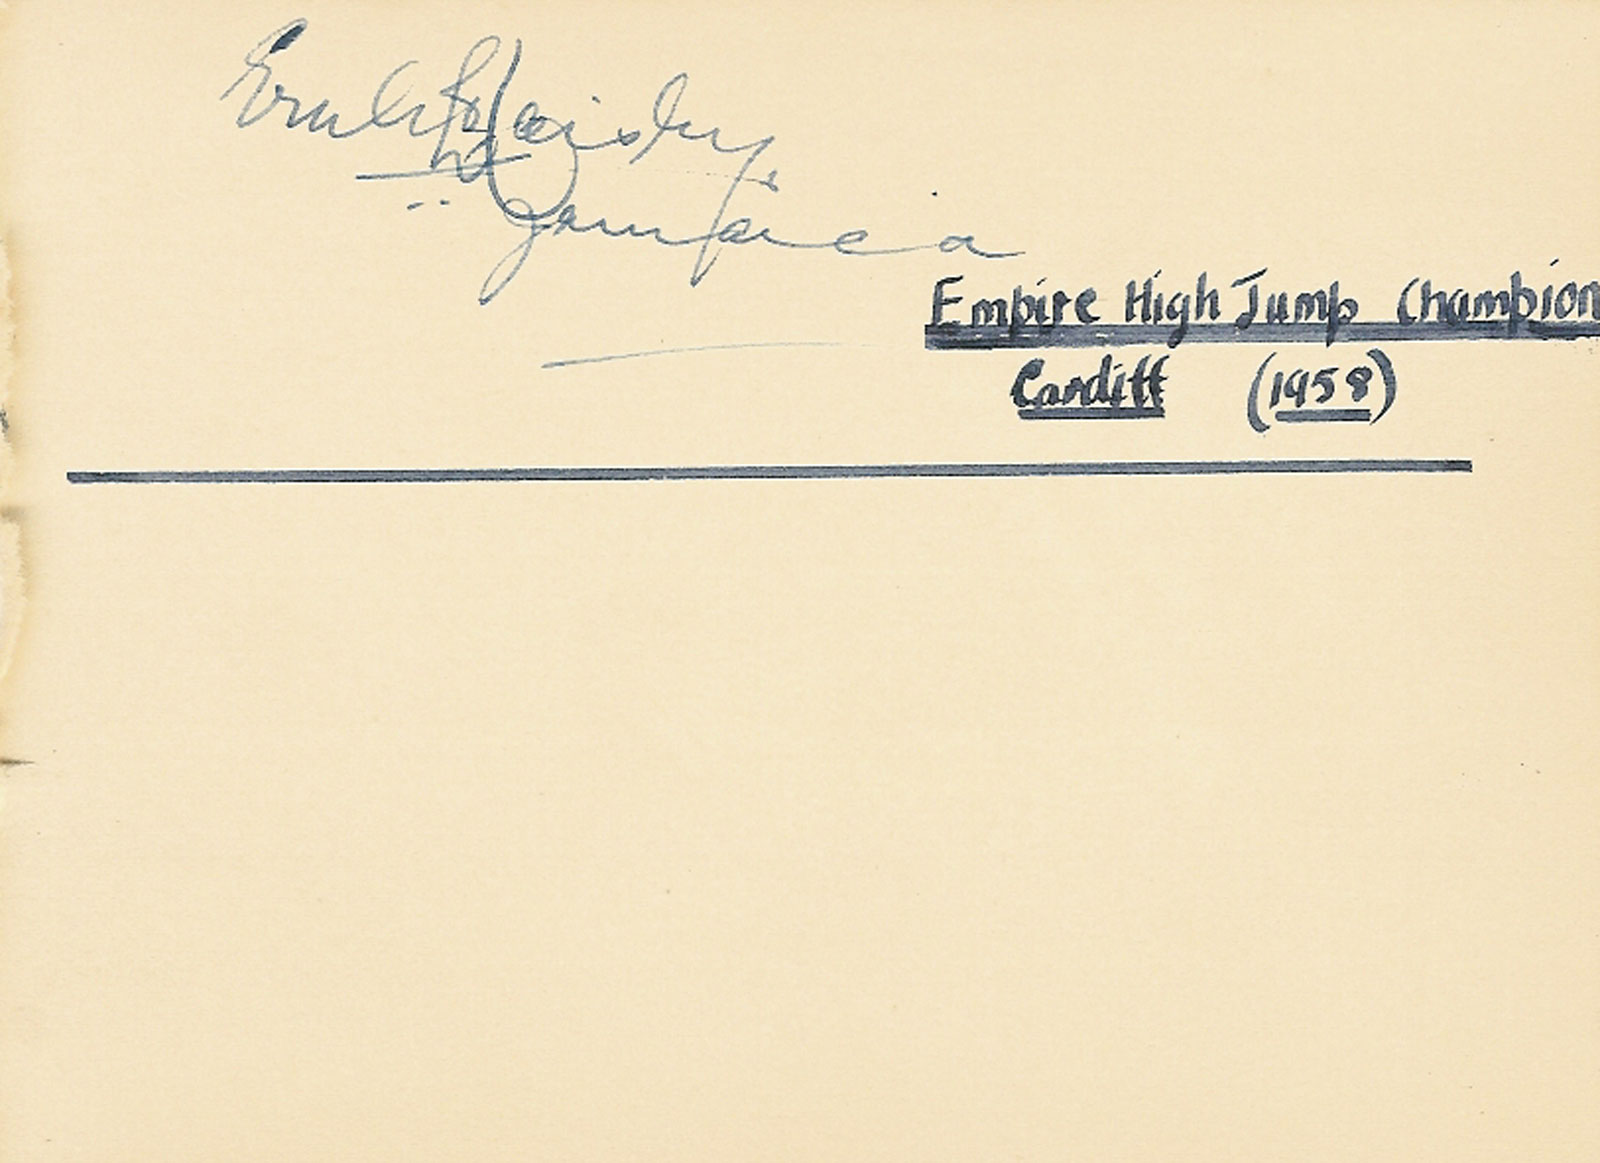 Ernle Haisley
Jamaica
Empire High Jump Champion
Cardiff (1958)